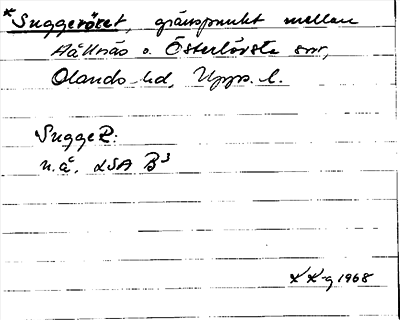 *Suggeröret, gränspunkt mellan
Hållnäs o. Österlövsta snr,
Olands hd, Upps. l.
SuggeR:
u.å. LSA B³
KK-g 1968